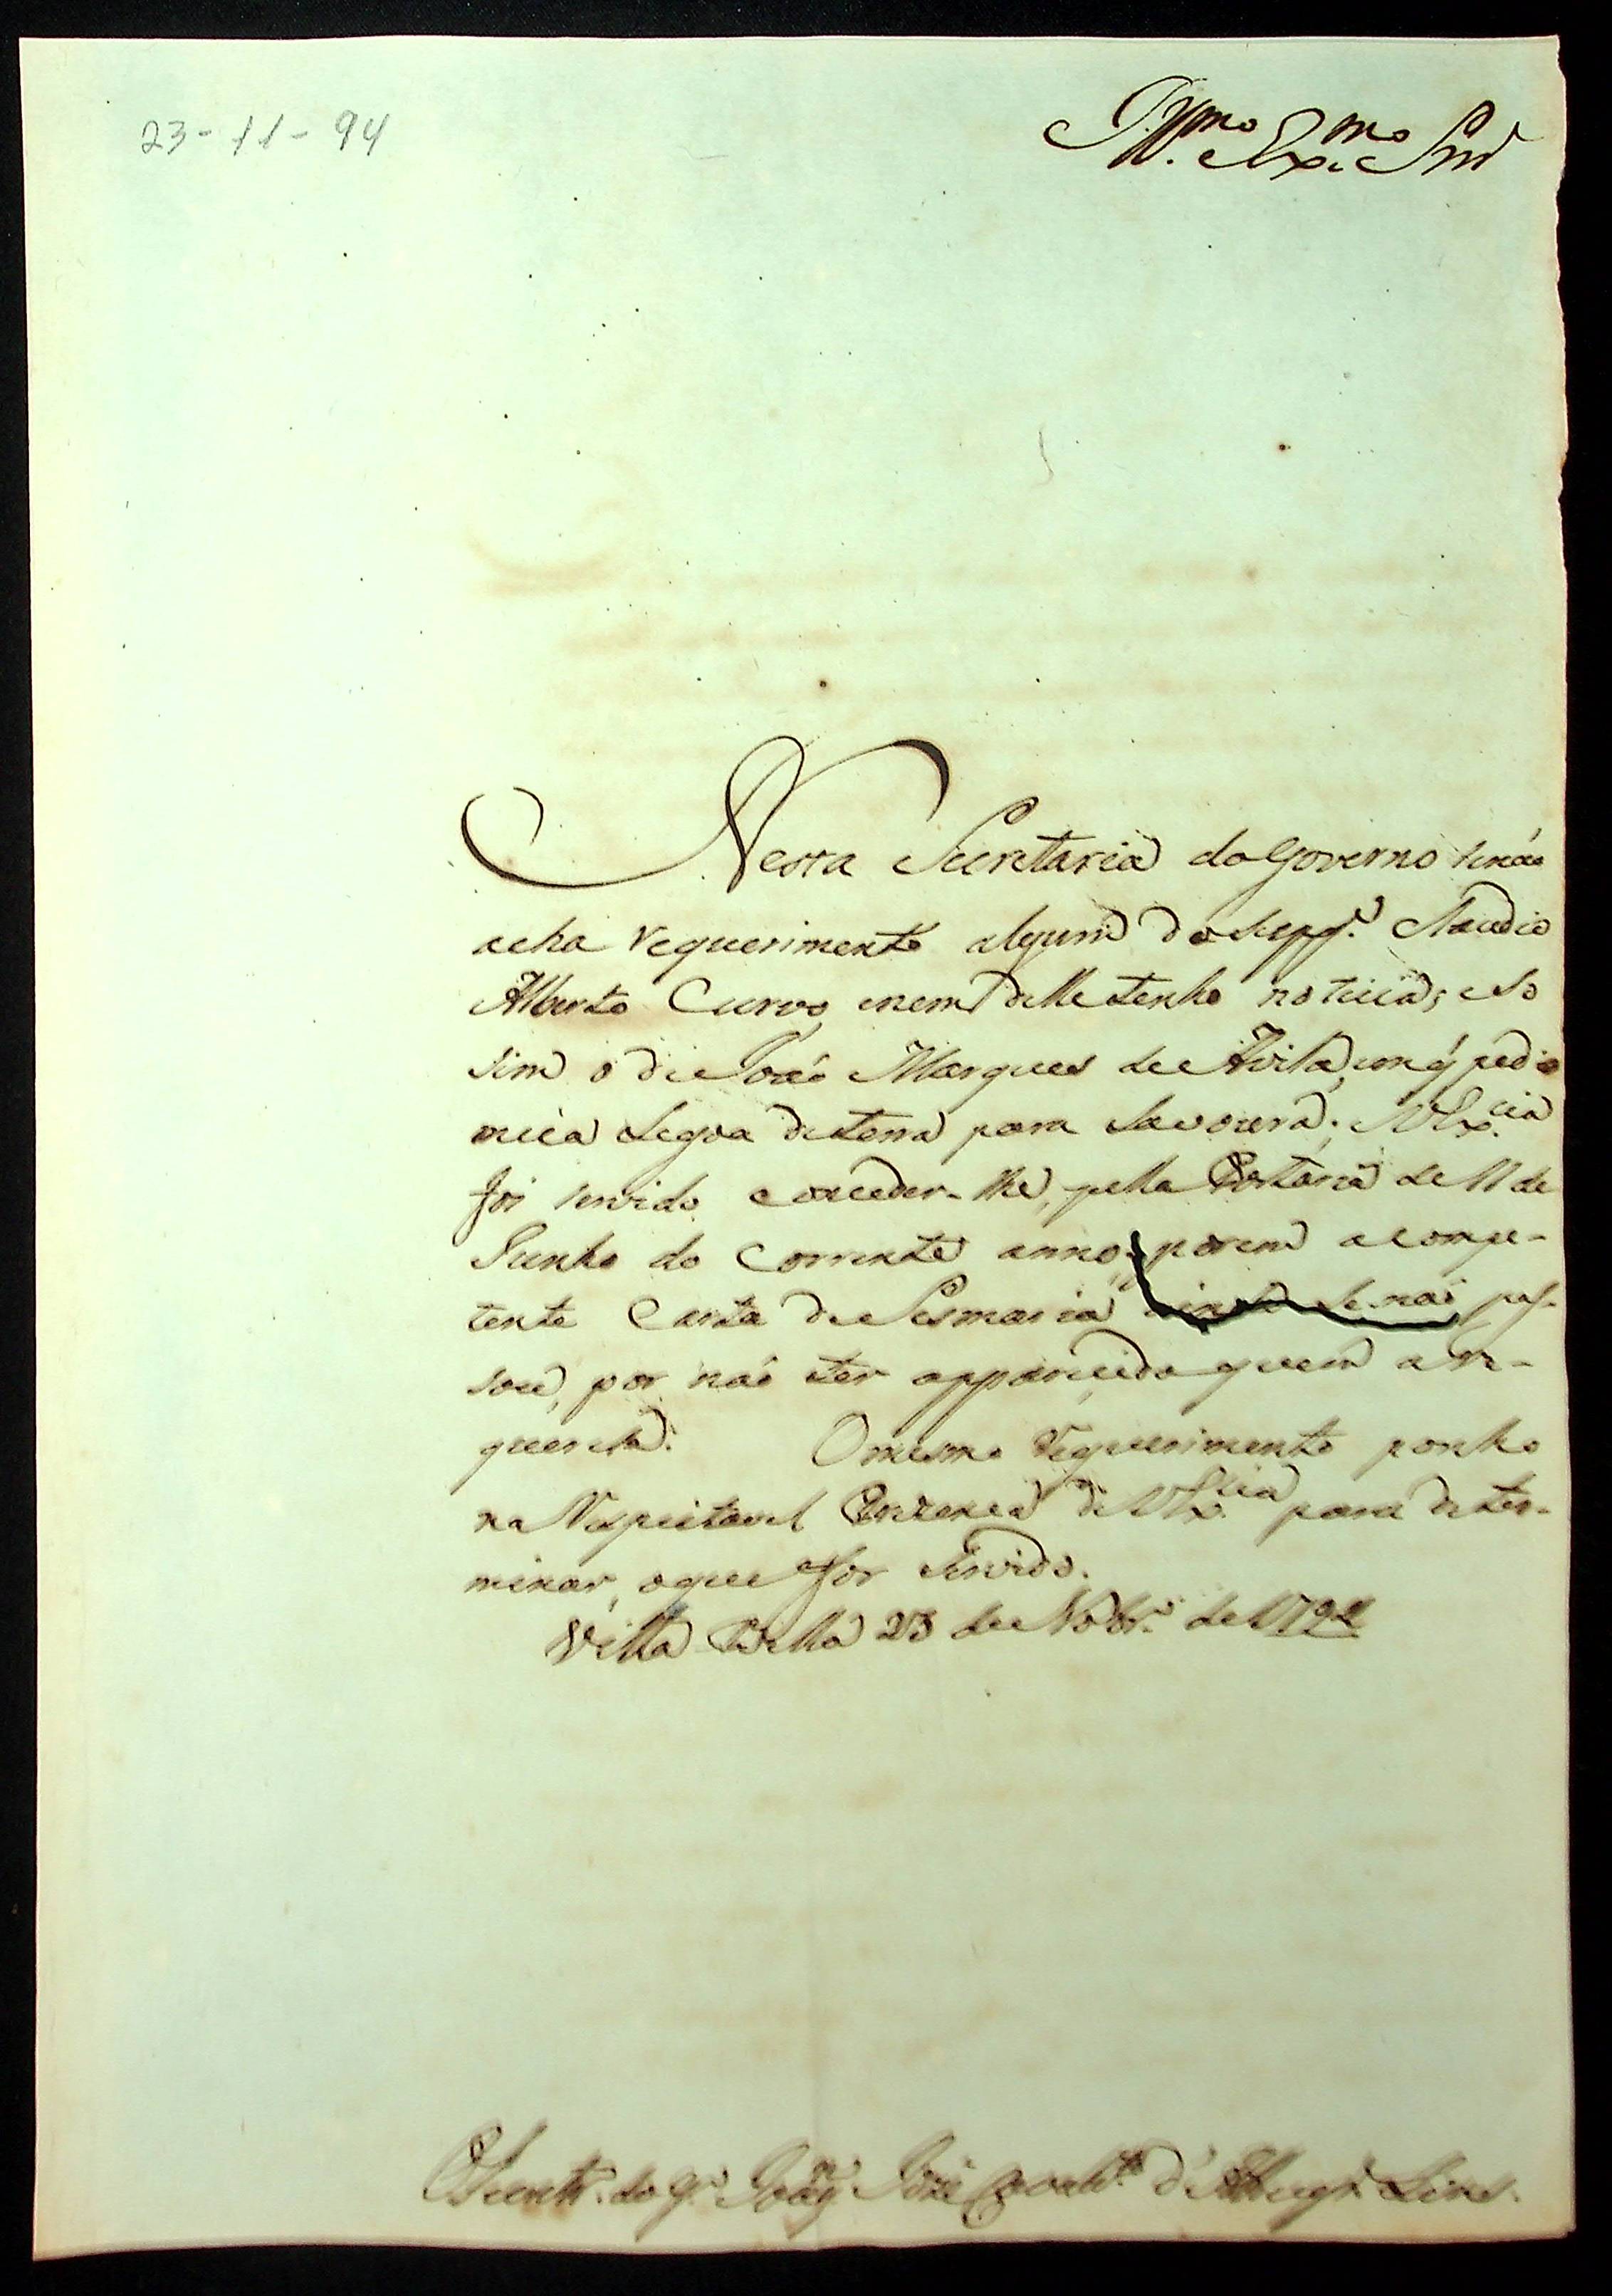 23-11-94
Ill.mo Ex.mo Snr
Nesta Secretaria do Governo senão
acha requerimento algum do Supp.e Claudio
Alberto Curvo, enem delle tenho noticia; e So
sim o de João Marques de Avila, em q̃ pedio
meia Legoa de terra para Lavoura; V Ex.cia
foi servido conceder-lhe, pella Portaria de 11 de
Junho do Corrente anno, porem a compe-
tente Carta de Sesmaria ainda se naõ pas-
sou, por naõ ter apparecido quem a re-
queresse. O mesmo requerimento ponho
na Respeitavel Prezença de V Ex.cia para deter-
minar, oque for Servido.
Villa Bella 23 de Novbr.o de 1794
O Secretr.o do G.o Joaq.m Joze Cavalc.te d'Albuqr.e Lins.